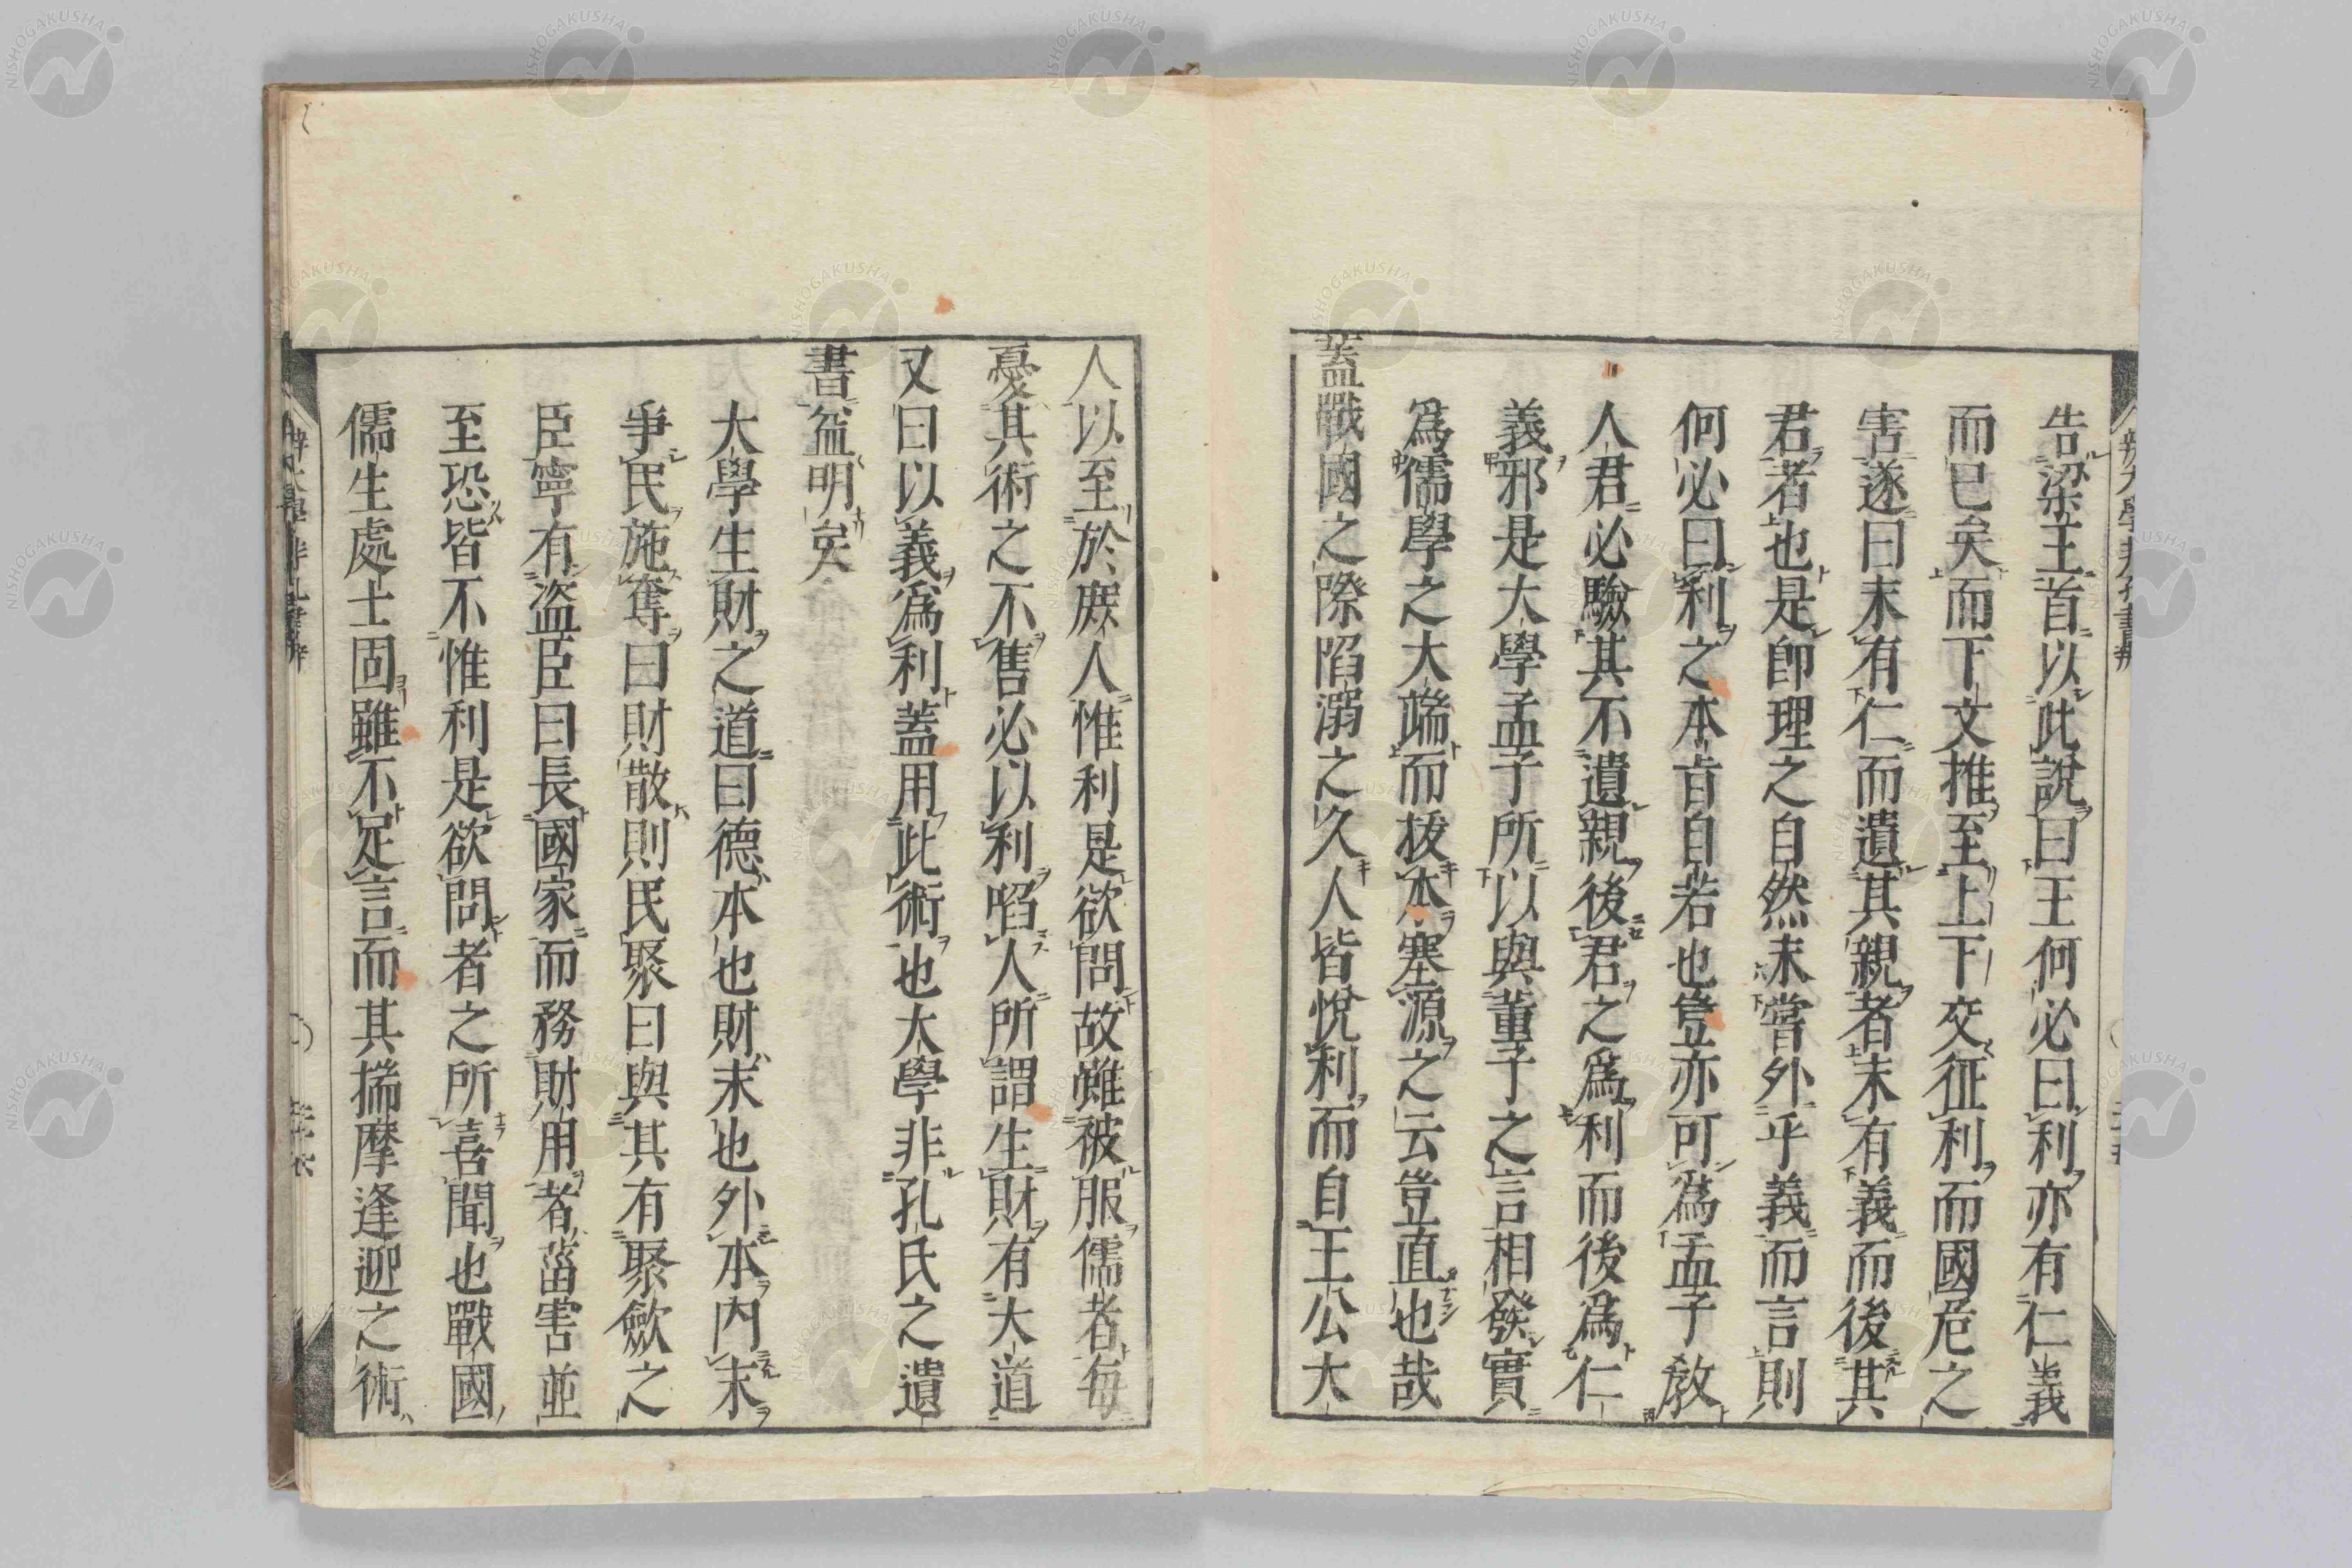 告梁王首以此說曰王何必曰利亦有仁義
而已矣而下文推至上下交征利而國危之
害遂曰末有仁而遺其親者末有義而後其
君者也是卽理之自然末嘗外乎義而言則
何必曰利之本旨自若也豈亦可爲孟子敎
人君必驗其不遺親後君之爲利而後爲仁
義邪是大學孟子所以與董子之言相發實
爲儒學之大端而拔本塞源之云豈直也哉
蓋戰國之際陷溺之久人皆悅利而自王公大
人以至於庶人惟利是欲問故雖被服儒者每
憂其術之不售必以利啗人所謂生財有大道
又曰以義爲利蓋用此術也大學非孔氏之遺
書益明矣
大學生財之道曰德本也財末也外本內末
爭民施奪曰財散則民聚曰與其有聚斂之
臣寧有盜臣曰長國家而務財用者菑害並
至恐皆不惟利是欲問者之所喜聞也戰國
儒生處士固雖不足言而其揣摩逢迎之術
辨大學非孔書辨
NISHOGAKUSHA